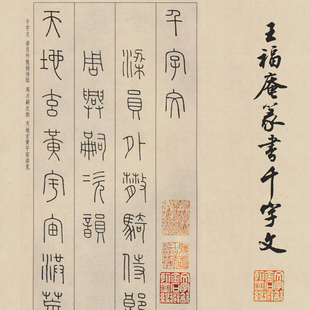 王福庵篆书千字文
千字文
梁員外散騎侍郎
周興嗣次韻
天地玄黃宇宙洪荒
千字文 梁員外散騎侍郎 周興嗣次韻 天地玄黃宇宙洪荒